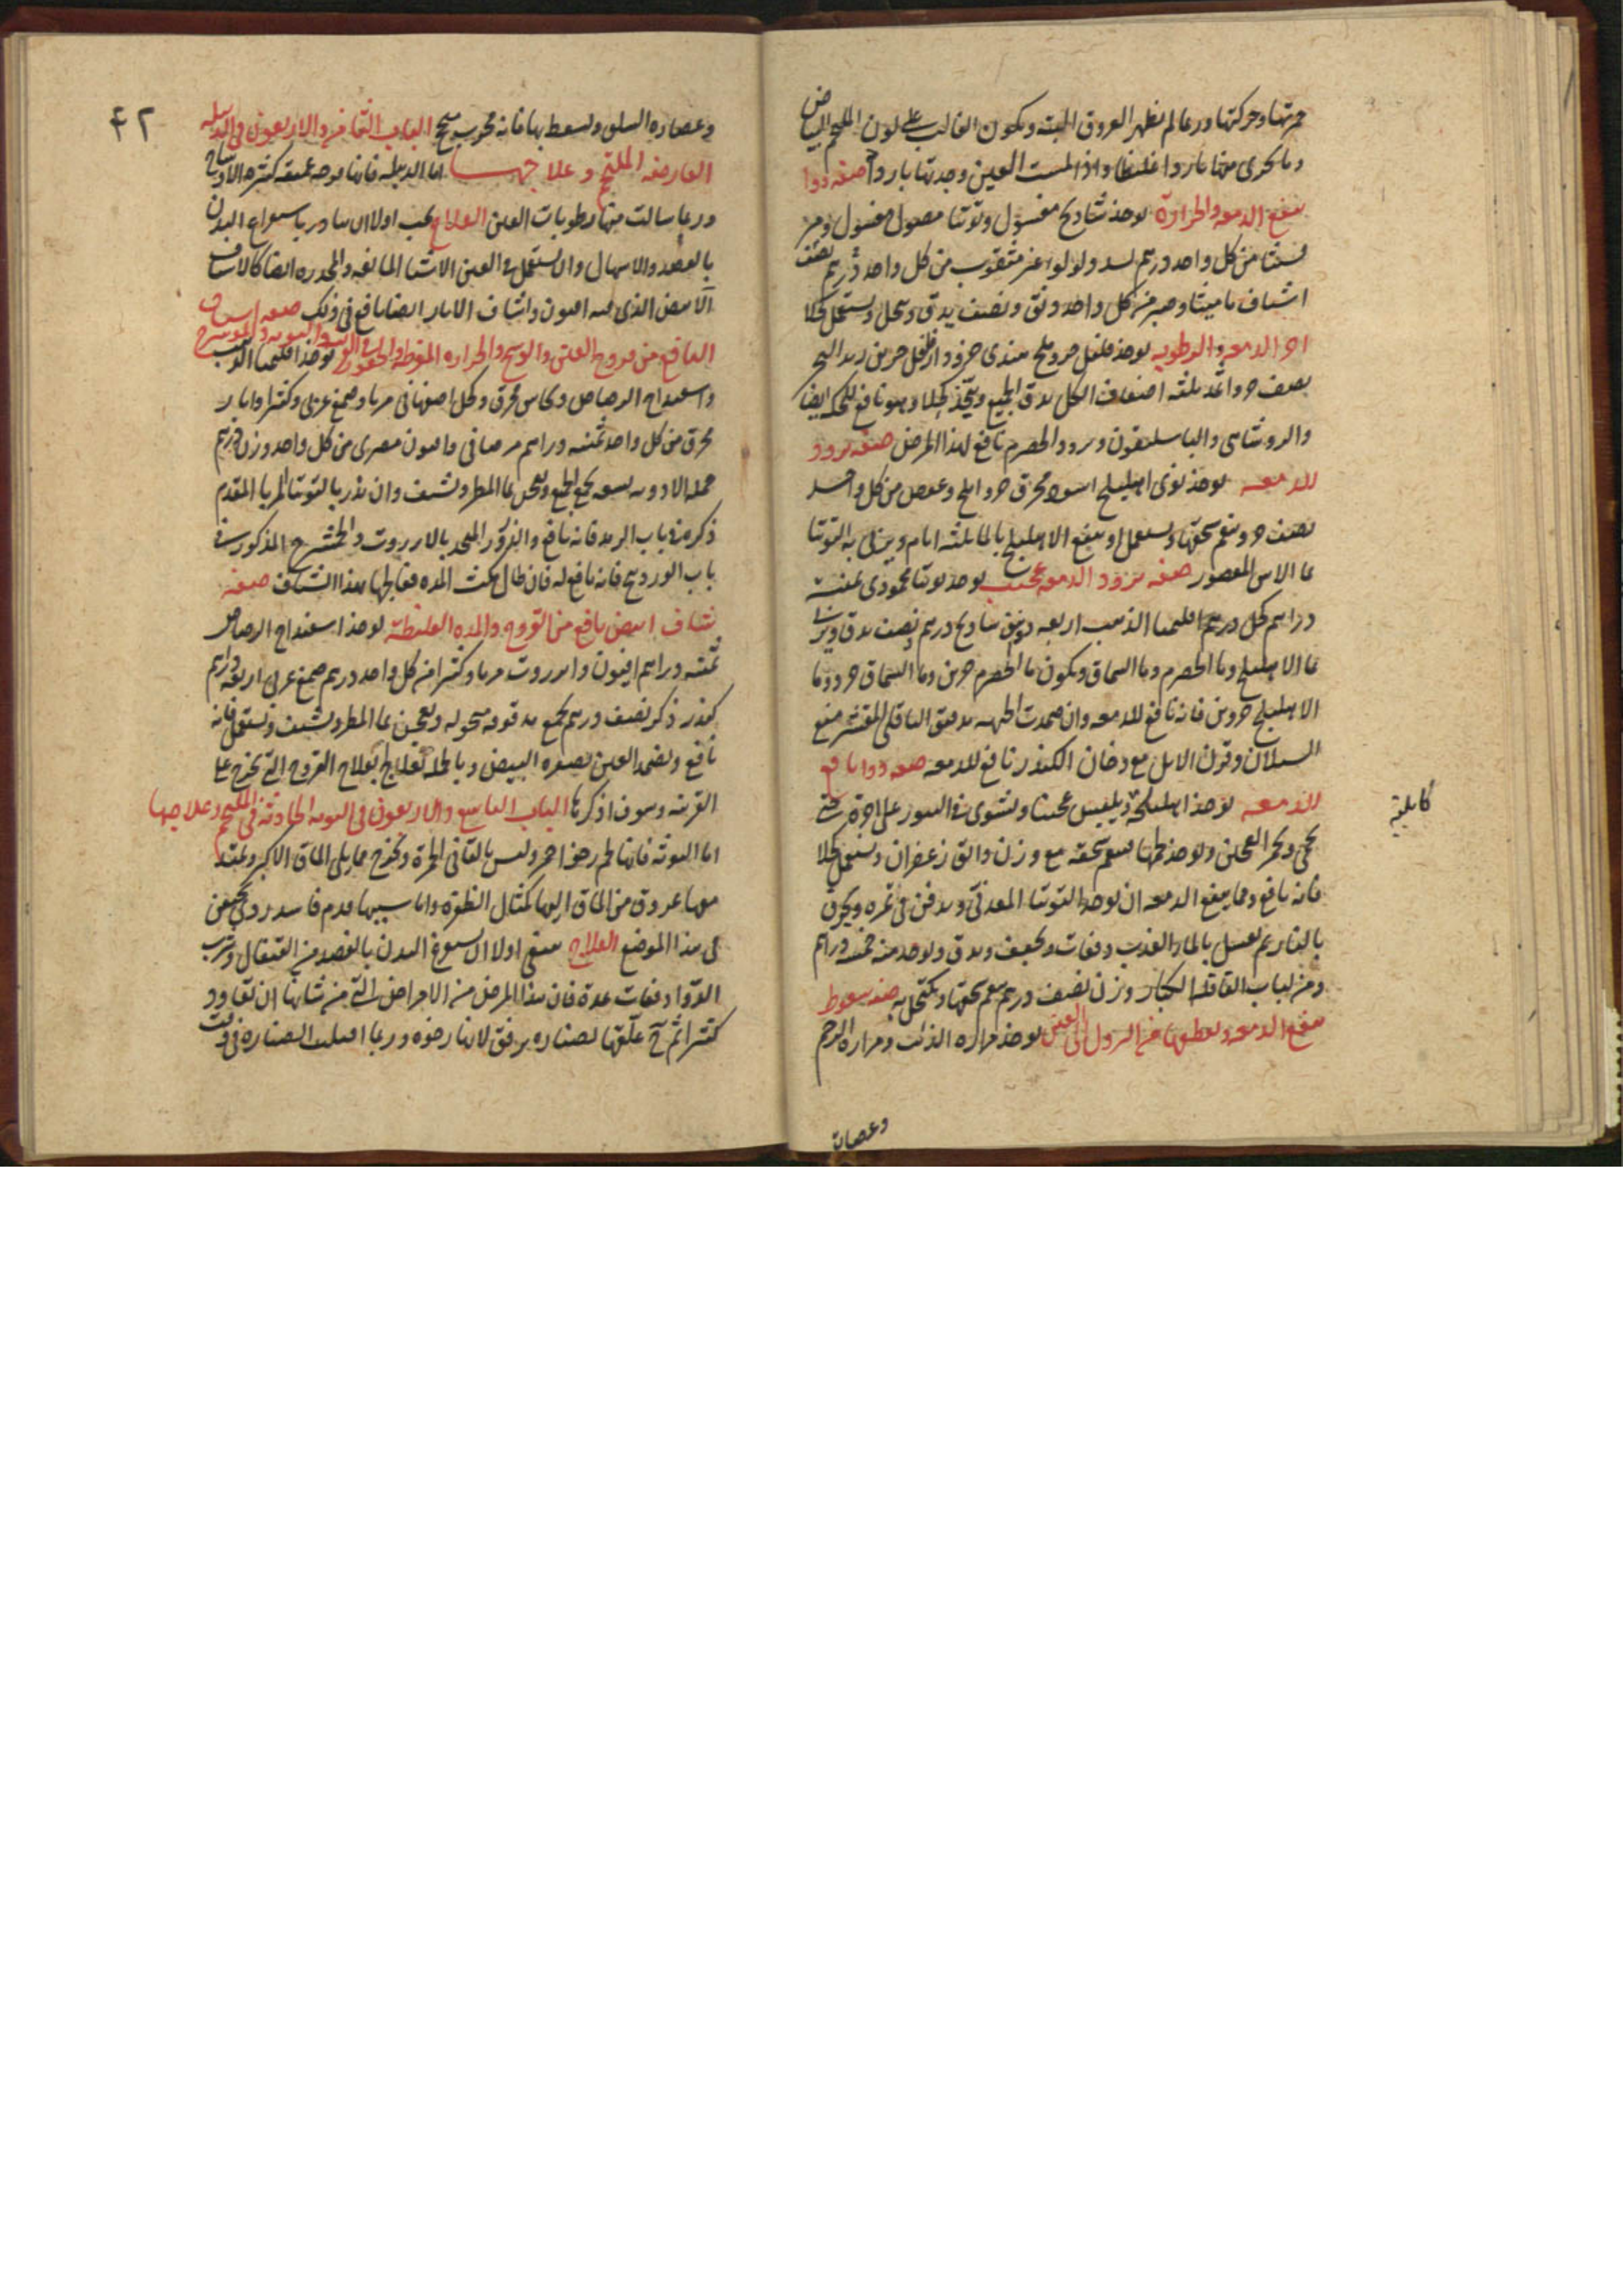 حمرتها وحركتها وربما لم يظهر العروق البته ويكون الغالب على لون الملتحم البياض
وما يجرى منها باردا غليظا واذا لمست العين وجدتها باردا صفه دوا
ينفع الدمعه والحرارة يوخذ شادنج مغسول وتوتيا مصول مغسول ومر
من كل واحد درهم بسد ولولوا غير مثقوب من كل واحد نصف درهم
اشياف ماميثا وصبر من كل واحد دانق ونصف يدق وينخل ويستعمل كحلا
اخر الدمعه والرطوبه يوخذ فلفل جزو ملح هندى جزو دار فلفل جزين زبد البحر
نصف جزو اثمد ثلثه اضعاف الكل يدق الجميع ويتخذ كحلا وهو نافع للحكه ايضا
والروشنائى والباسليقون وبرود الحصرم نافع لهذا المرض صفه برود
للدمعه يوخذ نوى اهليلج اسود محرق جزو املج وعفص من كل واحد
نصف جزو ينعم سحقها ويستعمل او ينقع الاهليلج بالما ثلثه ايام ويربى به التوتيا
بما الاس المعصور صفه برود الدمعه عجيب يوخذ توتيا محمودى ثمنيه
دراهم كل درهم اقليميا الذهب اربعه دوانق شادنج درهم ونصف يدق ويربا
بما الاهليلج وما الحصرم وما السماق ويكون ما الحصرم جزين وما السماق جزو وما
الاهليلج جزوين فانه نافع للدمعه وان ضمدت الجبهه بدقيق الباقلى المقشر منع
السيلان وقرن الايل مع دخان الكندر نافع للدمعه صفه دوا نافع
للدمعه يوخذ اهليلجه ويلبس عجينا ويشوى فى التنور على اجرة حتى
كابلية
يحمى ويحمر العجين ويوخذ لحمها ينعم سحقه مع وزن دانق زعفران ويستعمل كحلا
فانه نافع ومما ينفع الدمعه ان يوخذ التوتيا المعدنى ويدفن فى تمره ويحرق
بالنار ثم يغسل بالما العذب دفعات ويجفف ويدق ويوخذ منه خمسه دراهم
ومن لباب القاقله الكبار وزن نصف درهم ينعم سحقها ويكتحل به صفه سعوط
ينفع الدمعه ويقطعها من النزول الى العين يوخذ مراره الذئب ومراره الرخم
وعصاره
٤٢
وعصاره السلق ويسعط بها فانه مجرب صح الباب الثامن والاربعون فى الدبيله
العارضه الملتحم وعلاجها اما الدبيله فانها قرحه عميقه كثيره الاوساخ
وربما سالت منها رطوبات العين العلاج يجب اولا ان يبادر باستفراغ البدن
بالفصد والاسهال وان يستعمل فى العين الاشيا المانعه والمخدره ايضا كالاشياف
الابيض الذى فيه افيون واشياف الابار ايضا نافع فى ذلك صفه اشياف
النافع من قروح العين والوسخ والحراره المفرطه يوخذ اقليميا الذهب
واسفيداج الرصاص ونحاس محرق وكحل اصفهانى مربا وصمغ عربى وكثيرا وابار
محرق من كل واحد ثمنيه دراهم مر صافى وافيون مصرى من كل واحد وزن درهم
جمله الادويه تسعه يجمع الجميع ويعجن بما المطر ويشيف وان يذر بالتوتيا المربا المقدم
ذكره فى باب الرمد فانه نافع والذرور المتخذ بالانزروت والخشخاش المذكور فى
باب الوردينج فانه نافع له فان طال مكث المده فعالجها بهذا الشياف صفه
شياف ابيض نافع من القروح والمده الغليظه يوخذ اسفيداج الرصاص
ثمنيه دراهم افيون وانزروت مربا وكثيرا من كل واحد درهم صمغ عربى اربعه دراهم
كندر ذكر نصف درهم يجمع مدقوقه منخوله ويعجن بما المطر ويشيف ويستعمل فانه
نافع ويضمد العين بصفره البيض وبالجمله تعالج بعلاج القروح التى تخرج على
القرنيه وسوف اذكرها الباب التاسع والاربعون فى التوثه الحادثه فى الملتحم وعلاجها
اما التوثه فانها لحم رخو احمر وليس بالقانى الحمرة وتخرج مما يلى الماق الاكبر ويمتد
معها عروق من الماق اليها كمثال الظفرة واما سببها فدم فاسد ردى يحتقن
فى هذا الموضع العلاج ينبغى اولا ان يستفرغ البدن بالفصد من القيفال وشرب
الدوا دفعات عدة فان هذا المرض من الامراض التى من شانها ان تعاود
كثيرا ثم علقها بصناره برفق لانها رخوه وربما افلتت الصناره فى وقت